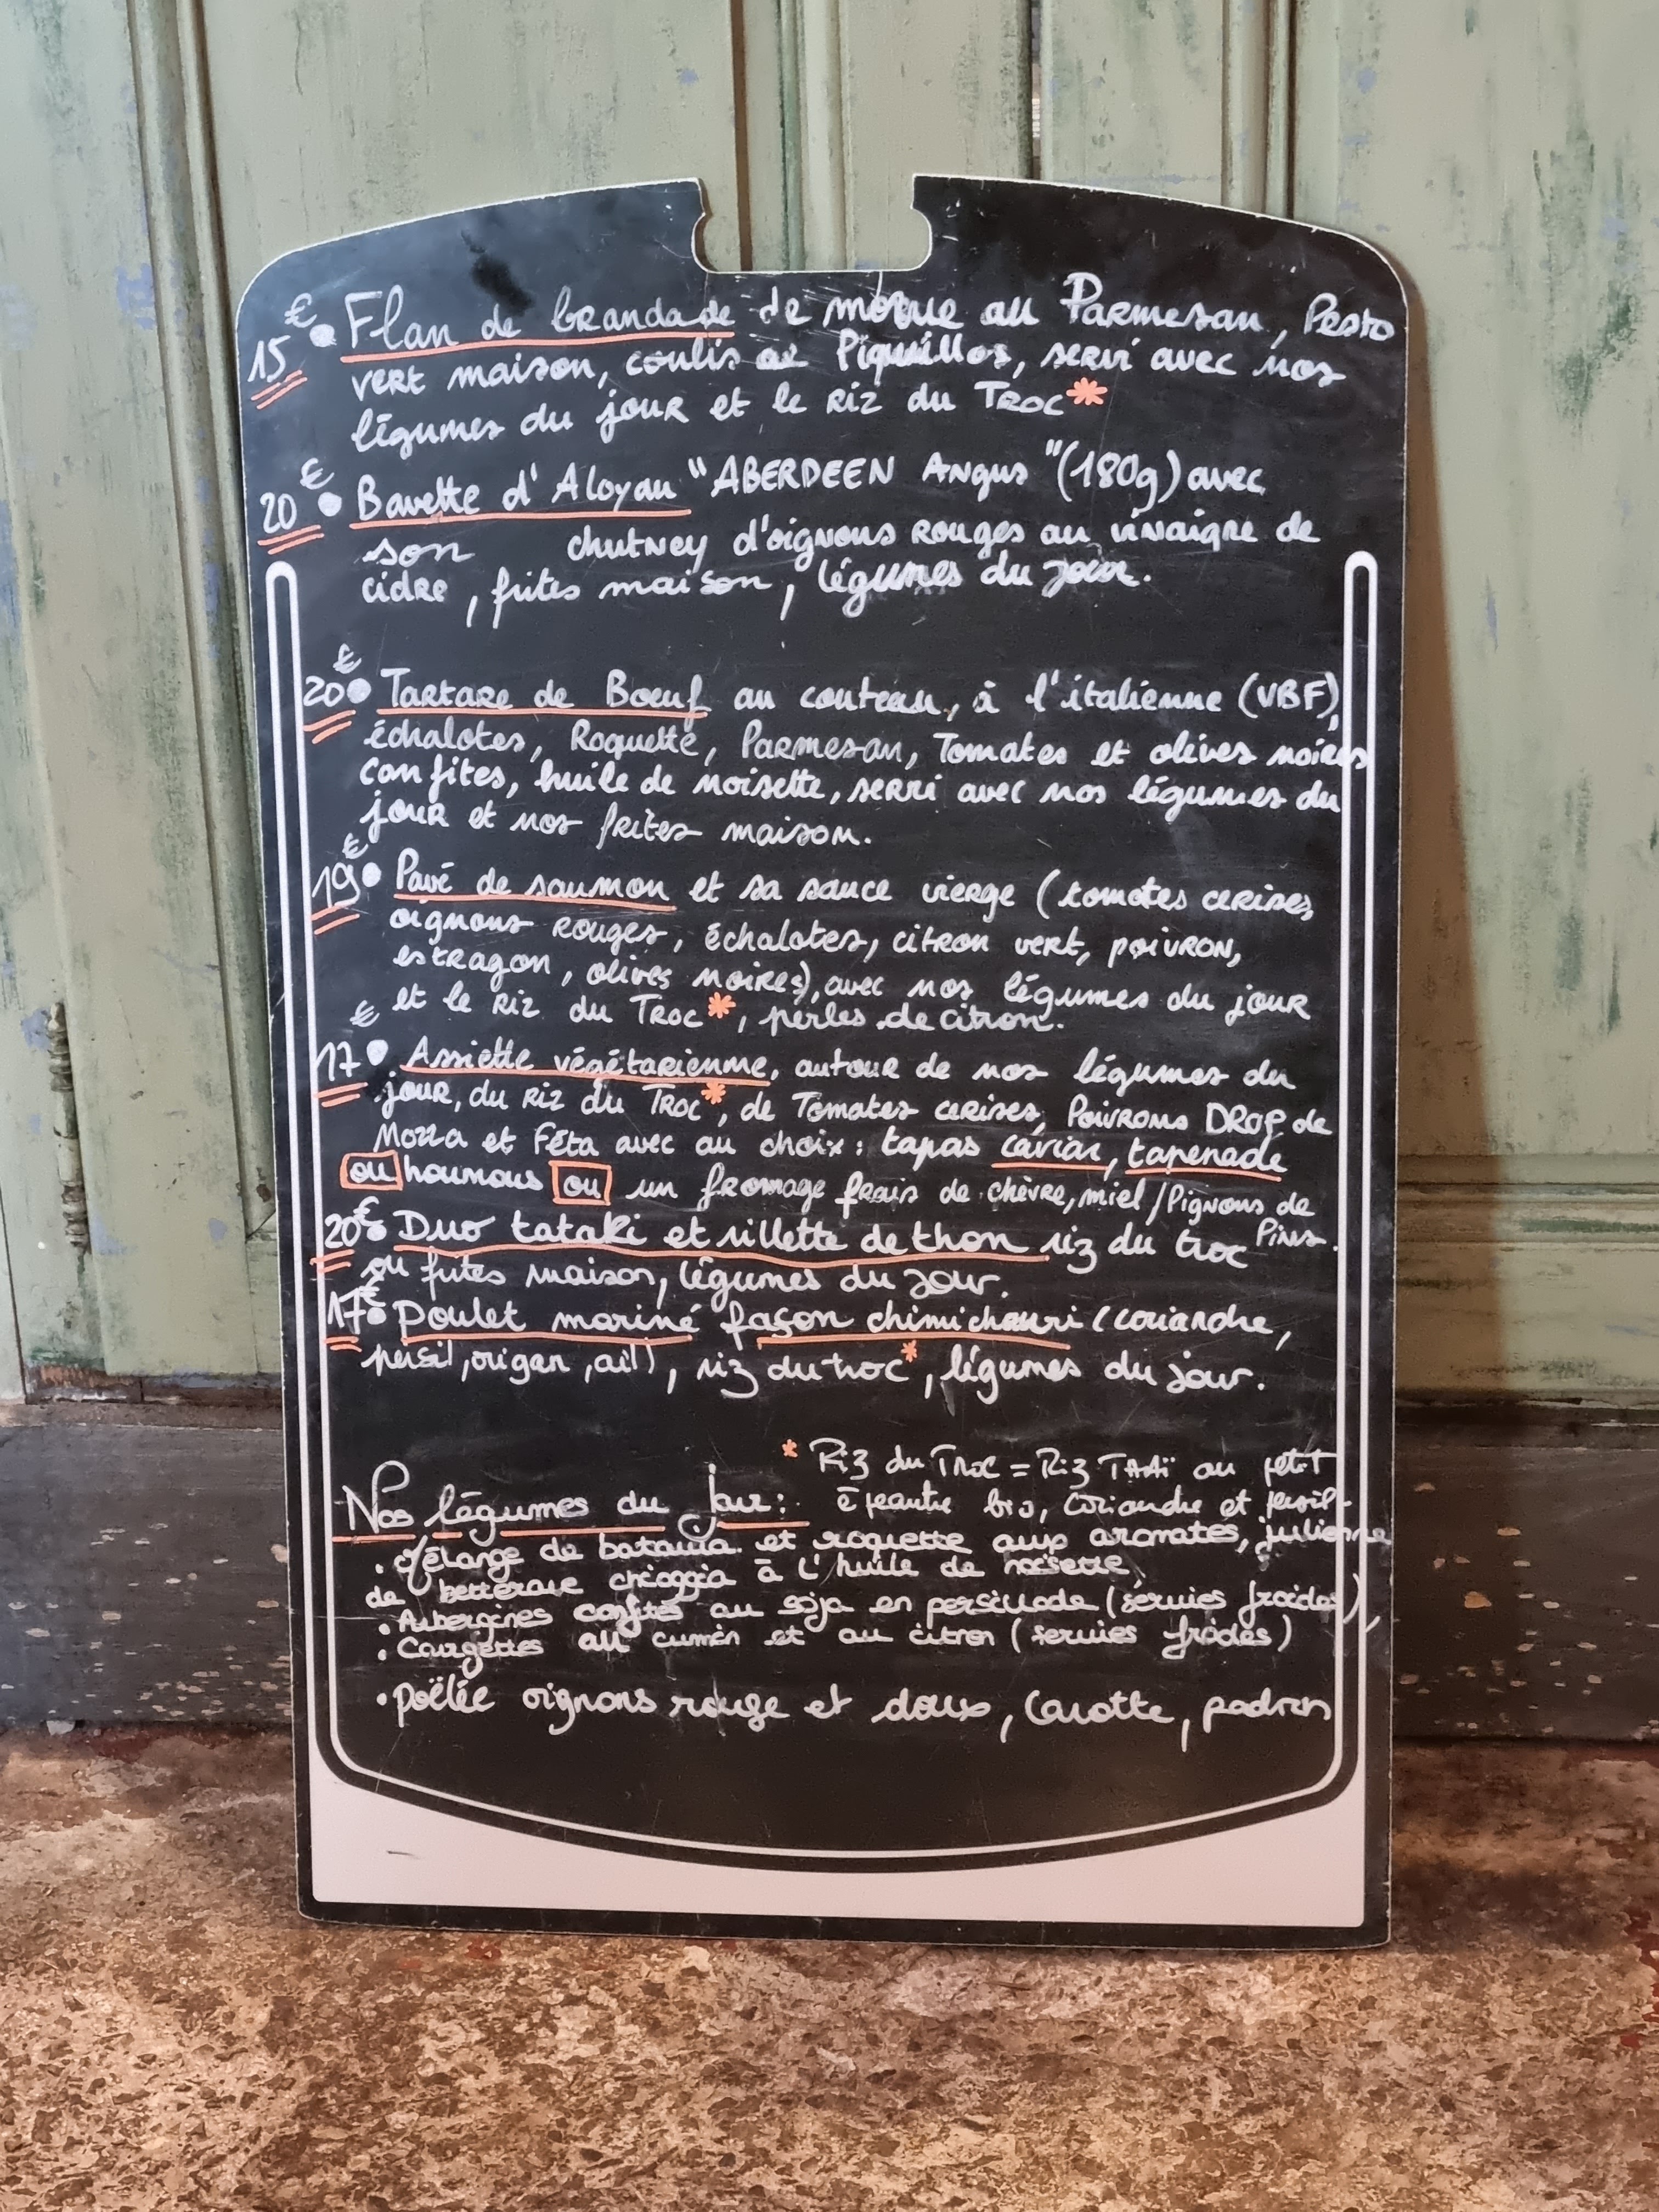 15€ • Flan de brandade de morue au Parmesan, Pesto
vert maison, coulis de Piquillos, servi avec nos
légumes du jour et le riz du Troc*
20€ • Bavette d'Aloyau "ABERDEEN Angus" (180g) avec
son chutney d'oignons rouges au vinaigre de
cidre, frites maison, légumes du jour.
20€ • Tartare de Boeuf au couteau, à l'italienne (VBF),
échalotes, Roquette, Parmesan, Tomates et olives noires
confites, huile de noisette, servi avec nos légumes du
jour et nos frites maison.
19€ • Pavé de saumon et sa sauce vierge (tomates cerises,
oignons rouges, échalotes, citron vert, poivron,
estragon, olives noires), avec nos légumes du jour
et le riz du Troc*, perles de citron.
17€ • Assiette végétarienne, autour de nos légumes du
jour, du riz du Troc*, de Tomates cerises, Poivrons DROP de
Mozza et Féta avec au choix : tapas caviar, tapenade
ou houmous ou un fromage frais de chèvre, miel/Pignons de
Pins.
20€ • Duo tataki et rillette de thon riz du troc
ou frites maison, légumes du jour.
17€ • Poulet mariné façon chimichurri (coriandre,
persil, origan, ail), riz du troc*, légumes du jour.
* Riz du Troc = Riz THAÏ au petit
épeautre bio, coriandre et persil
Nos légumes du jour :
• Mélange de batavia et roquette aux aromates, julienne
de betterave chioggia à l'huile de noisette
• Aubergines confites au soja en persillade (servies froides)
• Courgettes au cumin et au citron (servies froides)
• poêlée oignons rouge et doux, carotte, padron